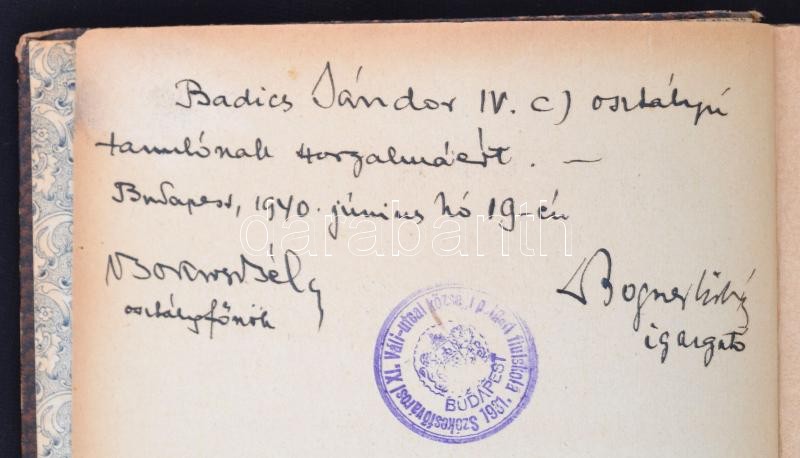 Badics Sándor IV. c) osztályú
tanulónak szorgalmáért. —
Budapest, 1940. június hó 19-én
Béla
osztályfőnök
Bogner
igazgató
Székesfővárosi XI. Váli-utcai közs. polgári fiúiskola 1931.
BUDAPEST
darabanth